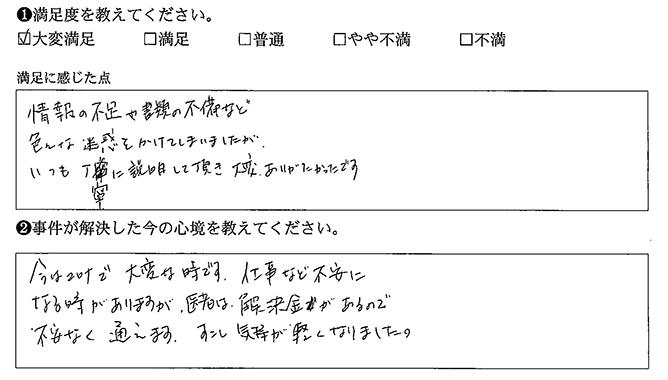 ❶満足度を教えてください。
☑大変満足 □満足 □普通 □やや不満 □不満
満足に感じた点
情報の不足や書類の不備など
色んな迷惑をかけてしまいましたが、
いつも丁寧に説明して頂き大変、ありがたかったです
寧
❷事件が解決した今の心境を教えてください。
今はコロナで大変な時です。仕事など不安に
なる時がありますが、医者は、解決金があるので
不安なく通えます。すこし気持が軽くなりました。